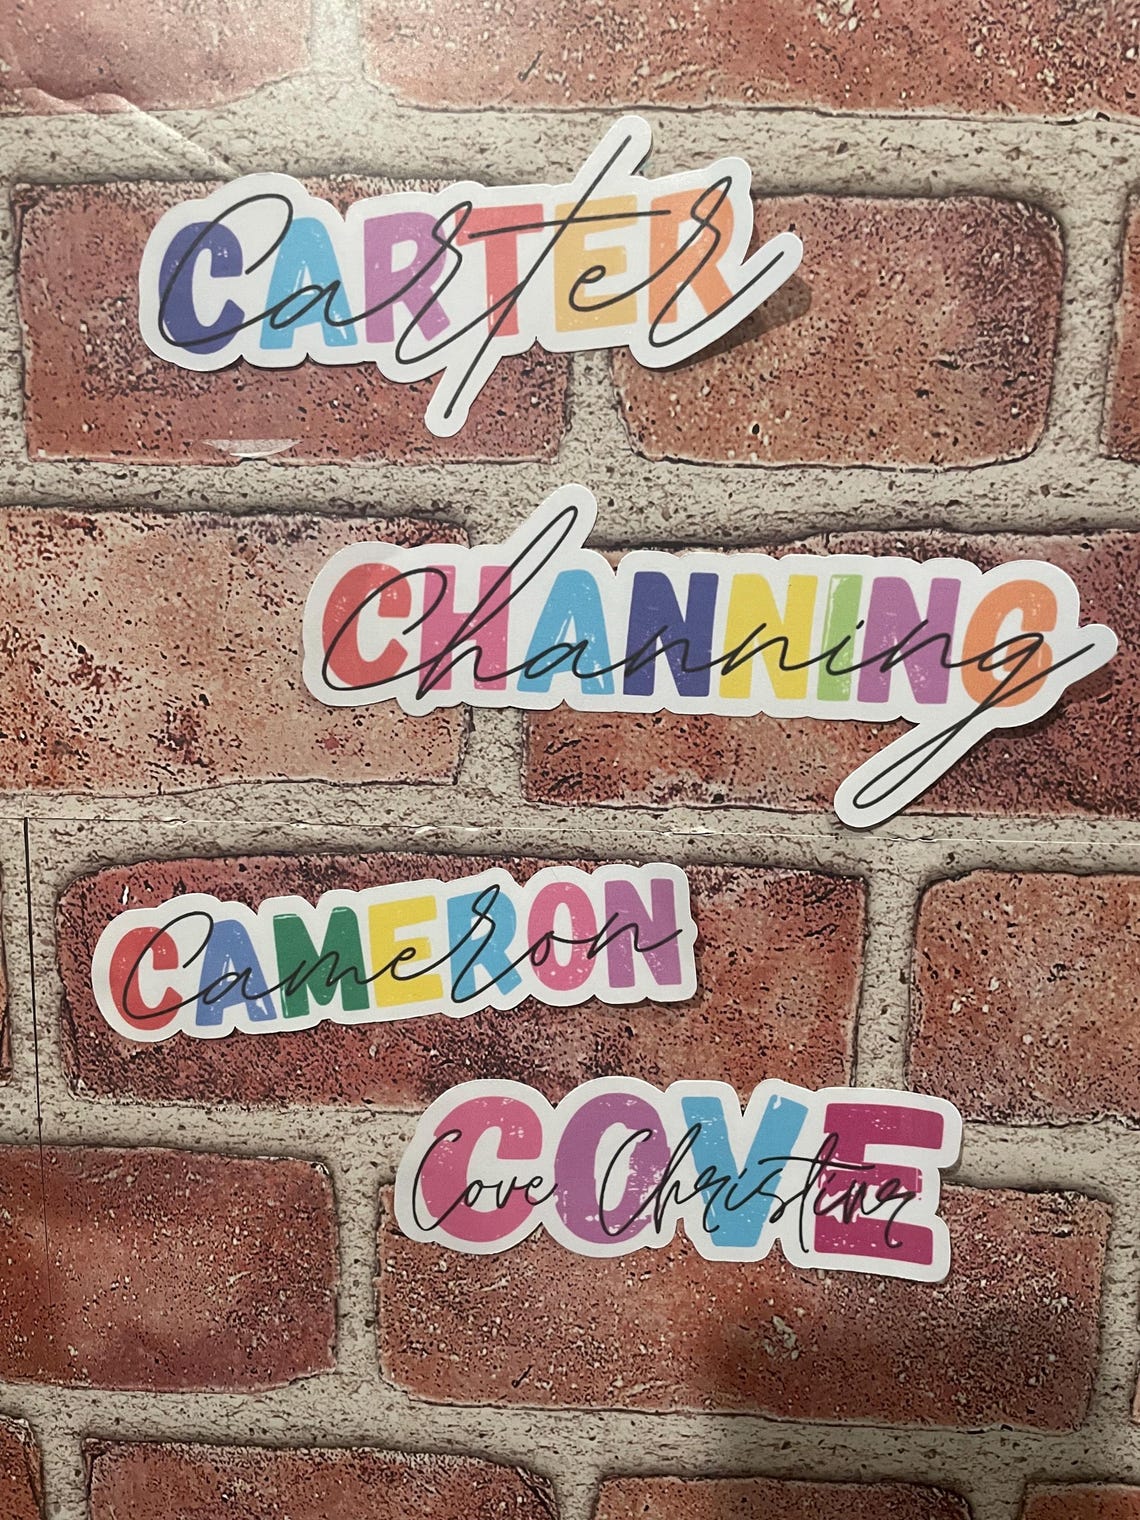 CARTER
Carter
CHANNING
Channing
CAMERON
Cameron
COVE
Cove Christine